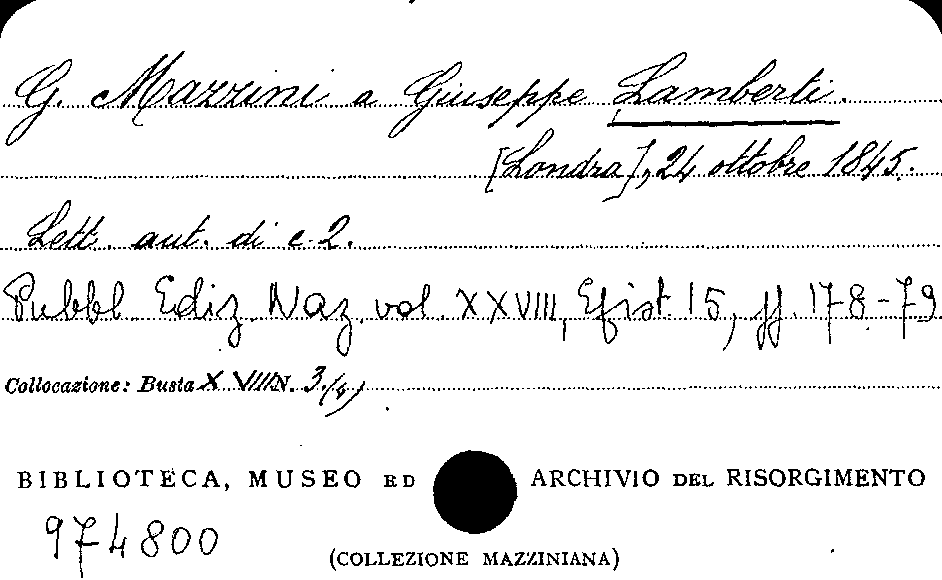 G. Mazzini a Giuseppe Lamberti.
[Londra], 24 ottobre 1845.
Lett. aut. di c. 2.
Pubbl. Ediz. Naz. vol. XXVIII, Epist 15, pp. 178-79
Collocazione: Busta X VIII N. 3/
BIBLIOTECA, MUSEO ED ARCHIVIO DEL RISORGIMENTO
974800
(COLLEZIONE MAZZINIANA)